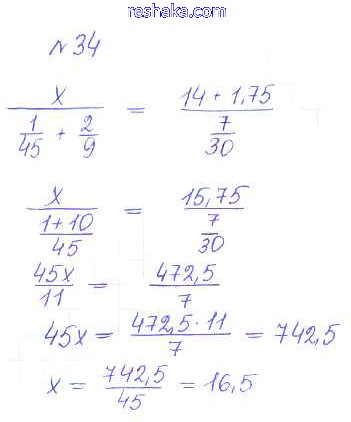 reshaka.com
№34
x / (1/45 + 2/9) = (14 + 1,75) / (7/30)
x / ((1+10)/45) = 15,75 / (7/30)
45x/11 = 472,5/7
45x = (472,5 · 11)/7 = 742,5
x = 742,5/45 = 16,5